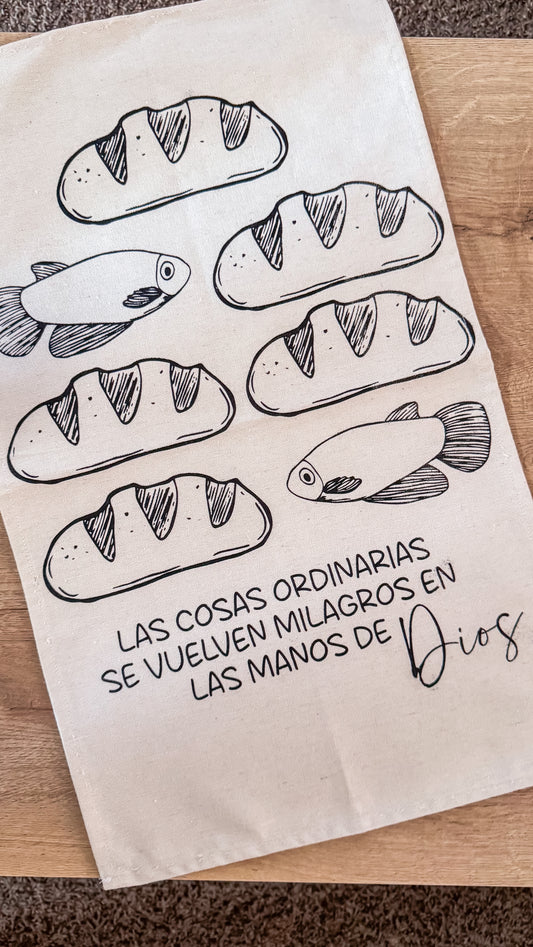 LAS COSAS ORDINARIAS
SE VUELVEN MILAGROS EN
LAS MANOS DE Dios